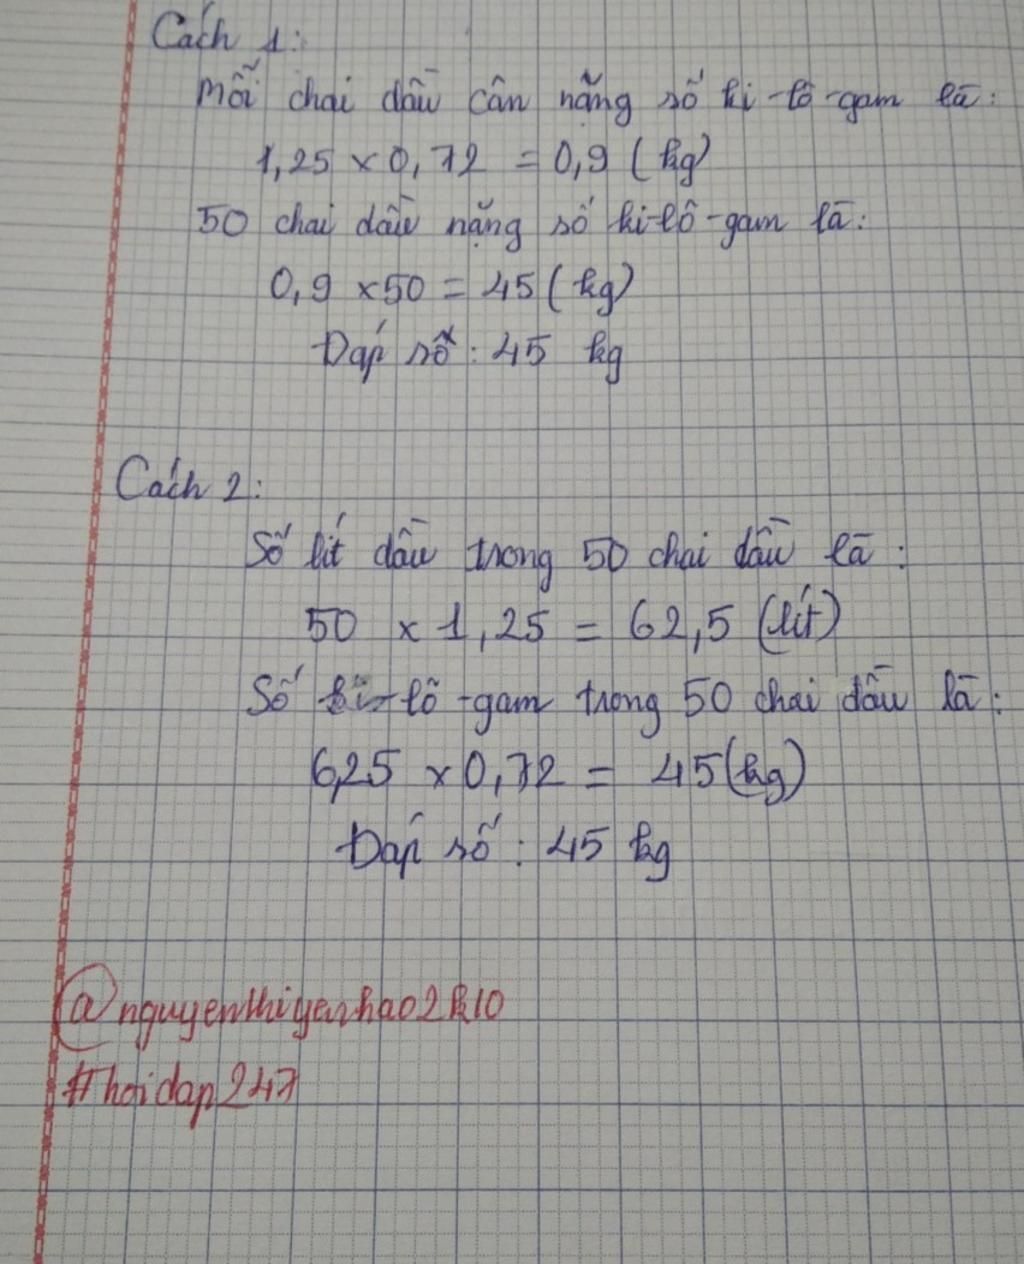 Cách 1:
Mỗi chai dầu cân nặng số ki-lô-gam là:
1,25 x 0,72 = 0,9 (kg)
50 chai dầu nặng số ki-lô-gam là:
0,9 x 50 = 45 (kg)
Đáp số: 45 kg
Cách 2:
Số lít dầu trong 50 chai dầu là:
50 x 1,25 = 62,5 (lít)
Số ki-lô-gam trong 50 chai dầu là:
6,25 x 0,72 = 45 (kg)
Đáp số: 45 kg
@nguyenthiyenhao2k10
#hoidap247